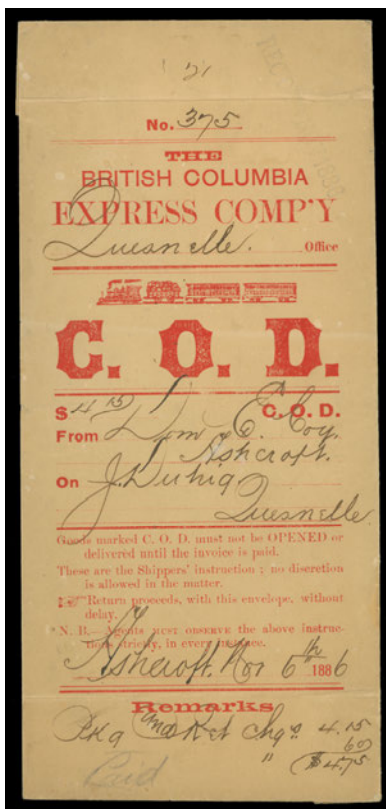 21
No. 375
THE
BRITISH COLUMBIA
EXPRESS COMP'Y
Quesnelle. Office
C. O. D.
$ 4 15 C. O. D.
From Dom E. Coy.
Ashcroft.
On J. Duhig
Quesnelle
Goods marked C. O. D. must not be OPENED or
delivered until the invoice is paid.
These are the Shippers' instruction ; no discretion
is allowed in the matter.
Return proceeds, with this envelope, without
delay.
N. B.—Agents MUST OBSERVE the above instruc-
tions strictly, in every instance.
Ashcroft Nov 6th 1886
Remarks
Pkg and Ret Chgs 4.15
" 60
$4.75
Paid